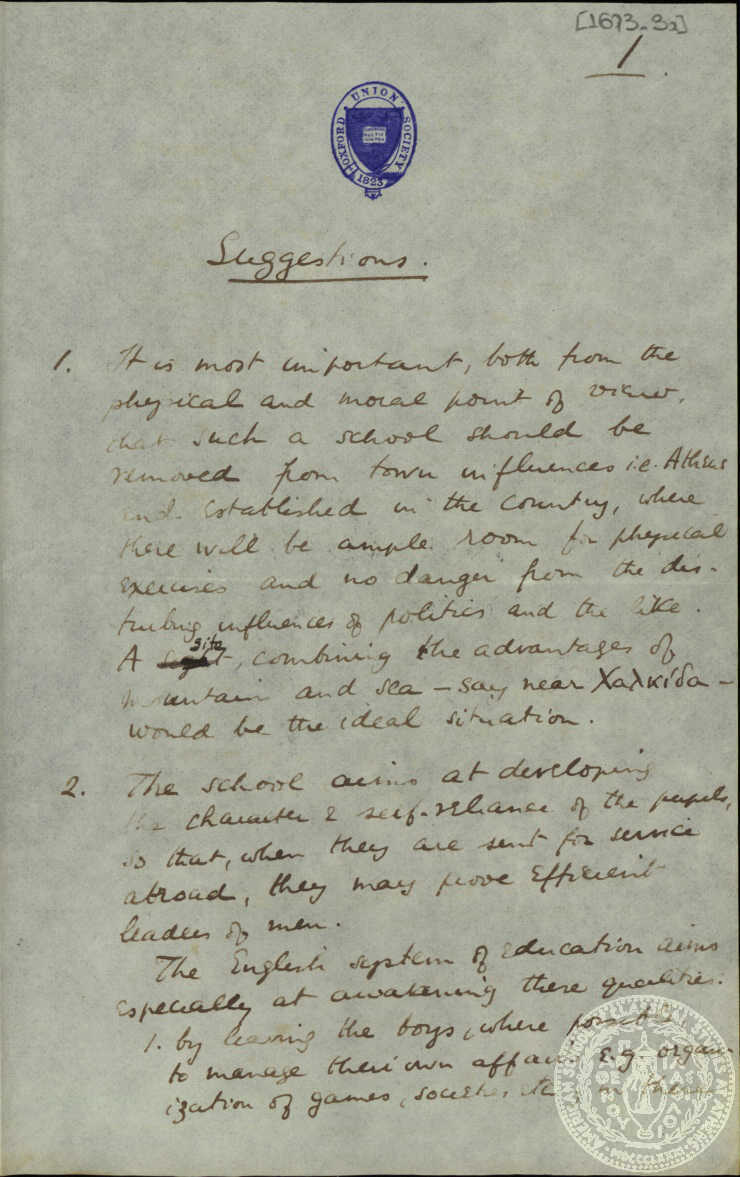 [1673-3a]
1
OXFORD UNION SOCIETY
1823
Suggestions.
1. It is most important, both from the
physical and moral point of view,
that such a school should be
removed from town influences i.e. Athens
and established in the country, where
there will be ample room for physical
exercises and no danger from the dis-
turbing influences of politics and the like.
A site, combining the advantages of
mountain and sea – say near Χαλκίδα –
would be the ideal situation.
2. The school aims at developing
the character & self-reliance of the pupils,
so that, when they are sent for service
abroad, they may prove efficient
leaders of men.
The English system of education aims
especially at awakening these qualities.
1. by leaving the boys, where possible
to manage their own affairs e.g. organ-
ization of games, societies etc